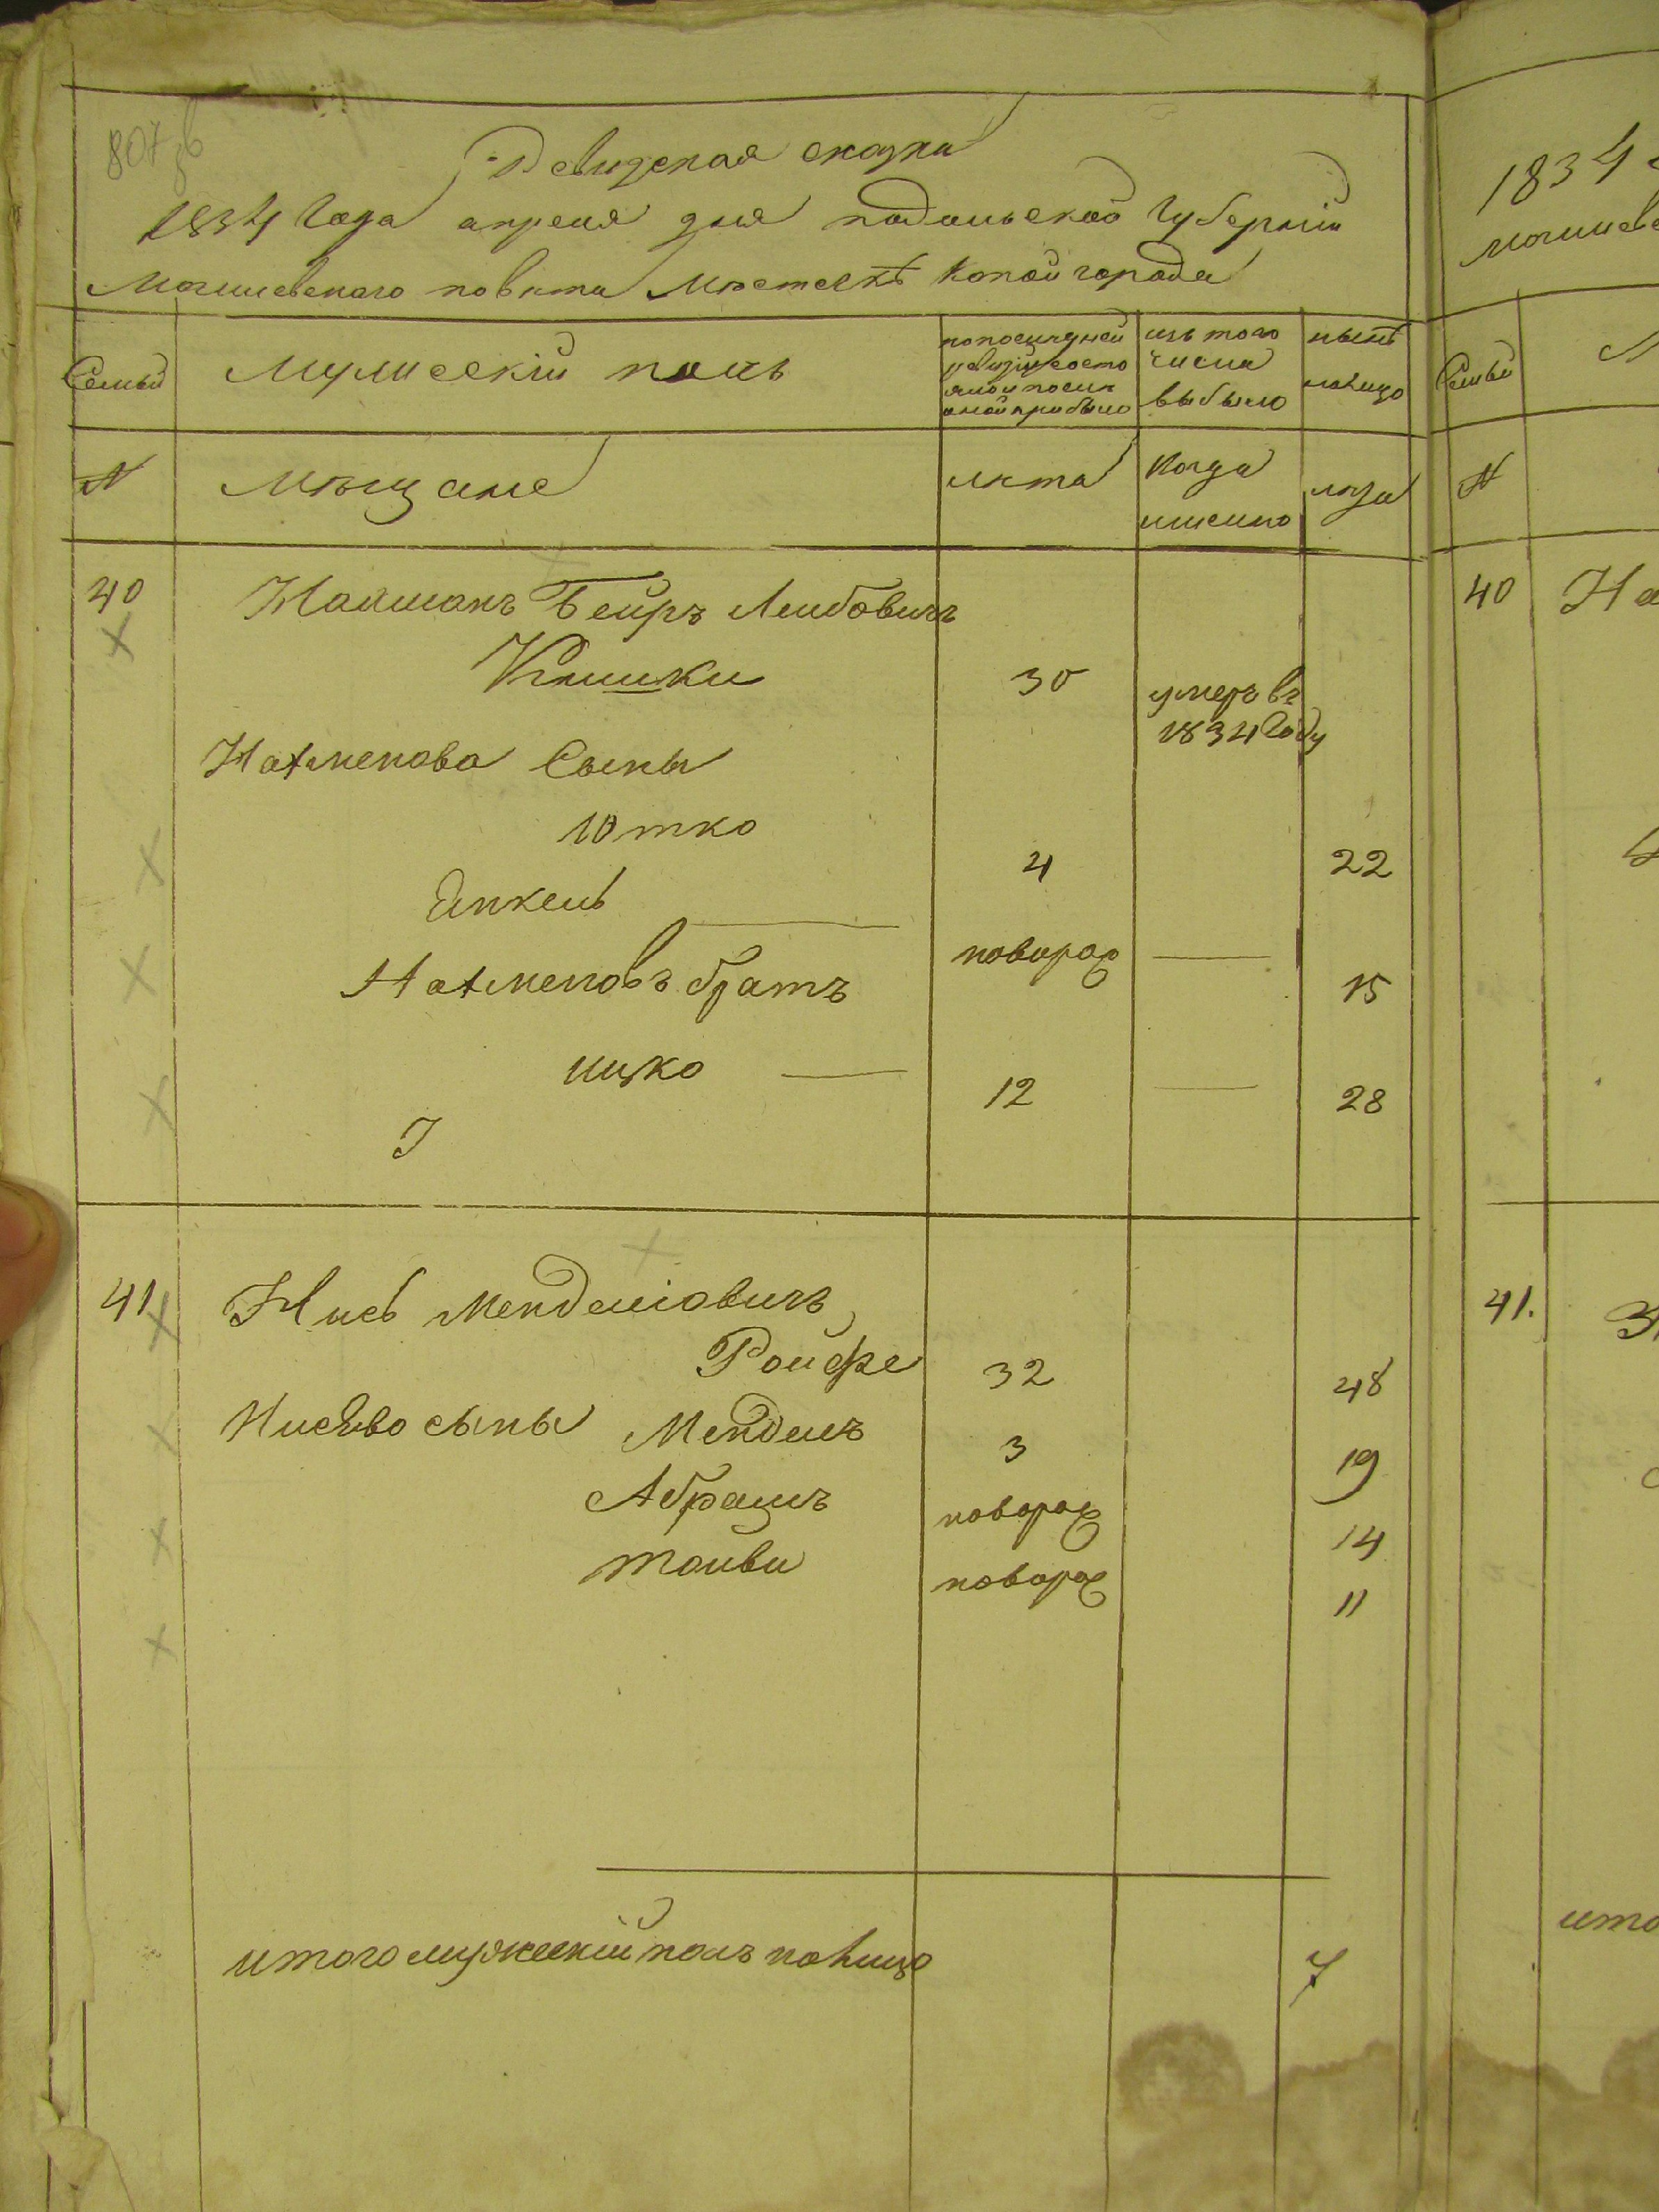 807
Ревизская сказка
1834 Года апреля дня подольской Губернїи
Могилевского повѣта Мѣстечкѣ Копай города
Семьи
Мужеской полъ
по последней ревизїи состояло и после оной прибыло
изъ того числа выбыло
нынѣ налицо
N
Мѣщане
лѣта
Когда именно
лѣта
40
Бейръ Лейбовичъ
30
умеръ въ
1834 Году
Нахменова Сыны
Ютко
4
22
Янкель
новорож
15
Нахменовъ братъ
ицко
12
28
41
Нись Менделіовичъ
Ройфе
32
48
Нисёво сыны Мендель
3
19
Абрамъ
новорож
14
Тойви
новорож
11
итого мужескїй полъ налицо
7
1834
Семьи
N
40
На
41.
ито